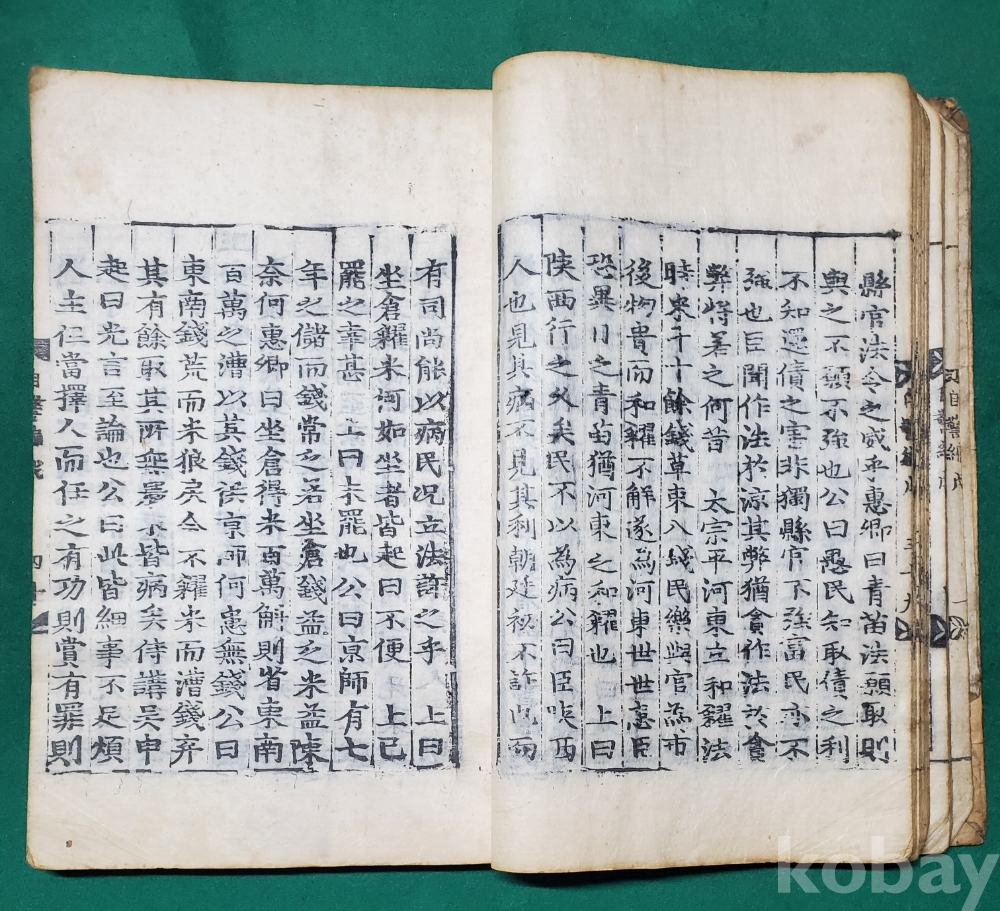 縣官法令之威乎惠卿曰青苗法願取則
與之不願不強也公曰愚民知取債之利
不知還債之害非獨縣官不強富民亦不
強也臣聞作法於涼其弊猶貪作法於貪
弊將若之何昔 太宗平河東立和糴法
時米斗十餘錢草束八錢民樂與官爲市
後物貴而和糴不解遂爲河東世世患臣
恐異日之青苗猶河東之和糴也 上曰
陝西行之久矣民不以為病公曰臣陝西
人也見其病不見其利朝廷初不許也而
有司尚能以病民况立法許之乎 上曰
坐倉糴米何如坐者皆起曰不便 上已
罷之幸甚 上曰未罷也公曰京師有七
年之儲而錢常乏若坐倉錢益乏米益陳
奈何惠卿曰坐倉得米百萬斛則省東南
百萬之漕以其錢供京師何患無錢公曰
東南錢荒而米狼戾今不糴米而漕錢弃
其有餘取其所無農末皆病矣侍講吳申
起曰光言至論也公曰此皆細事不足煩
人主但當擇人而任之有功則賞有罪則
自警編 戊
kobay